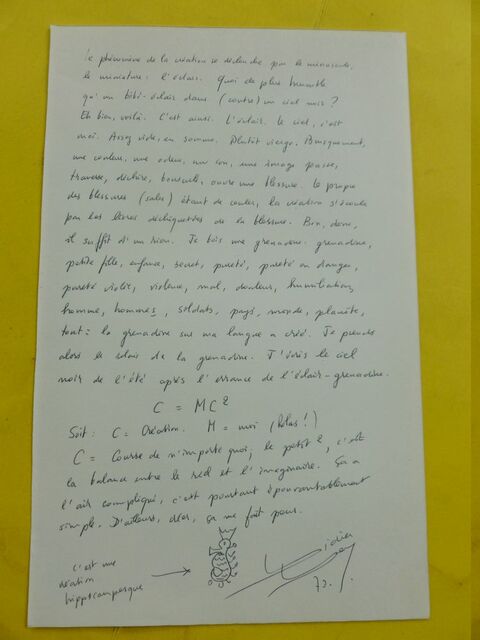 Le phénomène de la création se déclenche par le minuscule,
le miniature : l'éclair. Quoi de plus humble
qu'un bébé-éclair dans (contre) un ciel noir ?
Eh bien, voilà. C'est ainsi. L'éclair. Le ciel, c'est
moi. Assez vide, en somme. Plutôt vierge. Brusquement,
une couleur, une odeur, un son, une image passe,
traverse, déchire, bouscule, ouvre une blessure. Le propre
des blessures (sales) étant de couler, la création s'écoule
par les lèvres déchiquetées de la blessure. Bon, donc,
il suffit d'un rien. Je bois une grenadine. grenadine,
petite fille, enfance, secret, pureté, pureté en danger,
pureté violée, violence, mal, douleur, humiliation,
homme, hommes, soldats, pays, monde, planète,
tout : la grenadine sur ma langue a créé. Je prends
alors le de la grenadine. J'écris le ciel
noir de l'été après l'errance de l'éclair-grenadine.
C = MC2
Soit : C = Création. M = moi (hélas !)
C = Course de n'importe quoi, le petit 2, c'est
la balance entre le réel et l'imaginaire. Ça a
l'air compliqué, c'est pourtant épouvantablement
simple. D'ailleurs, ça me fait peur.
c'est une
création
hippocampesque
73.